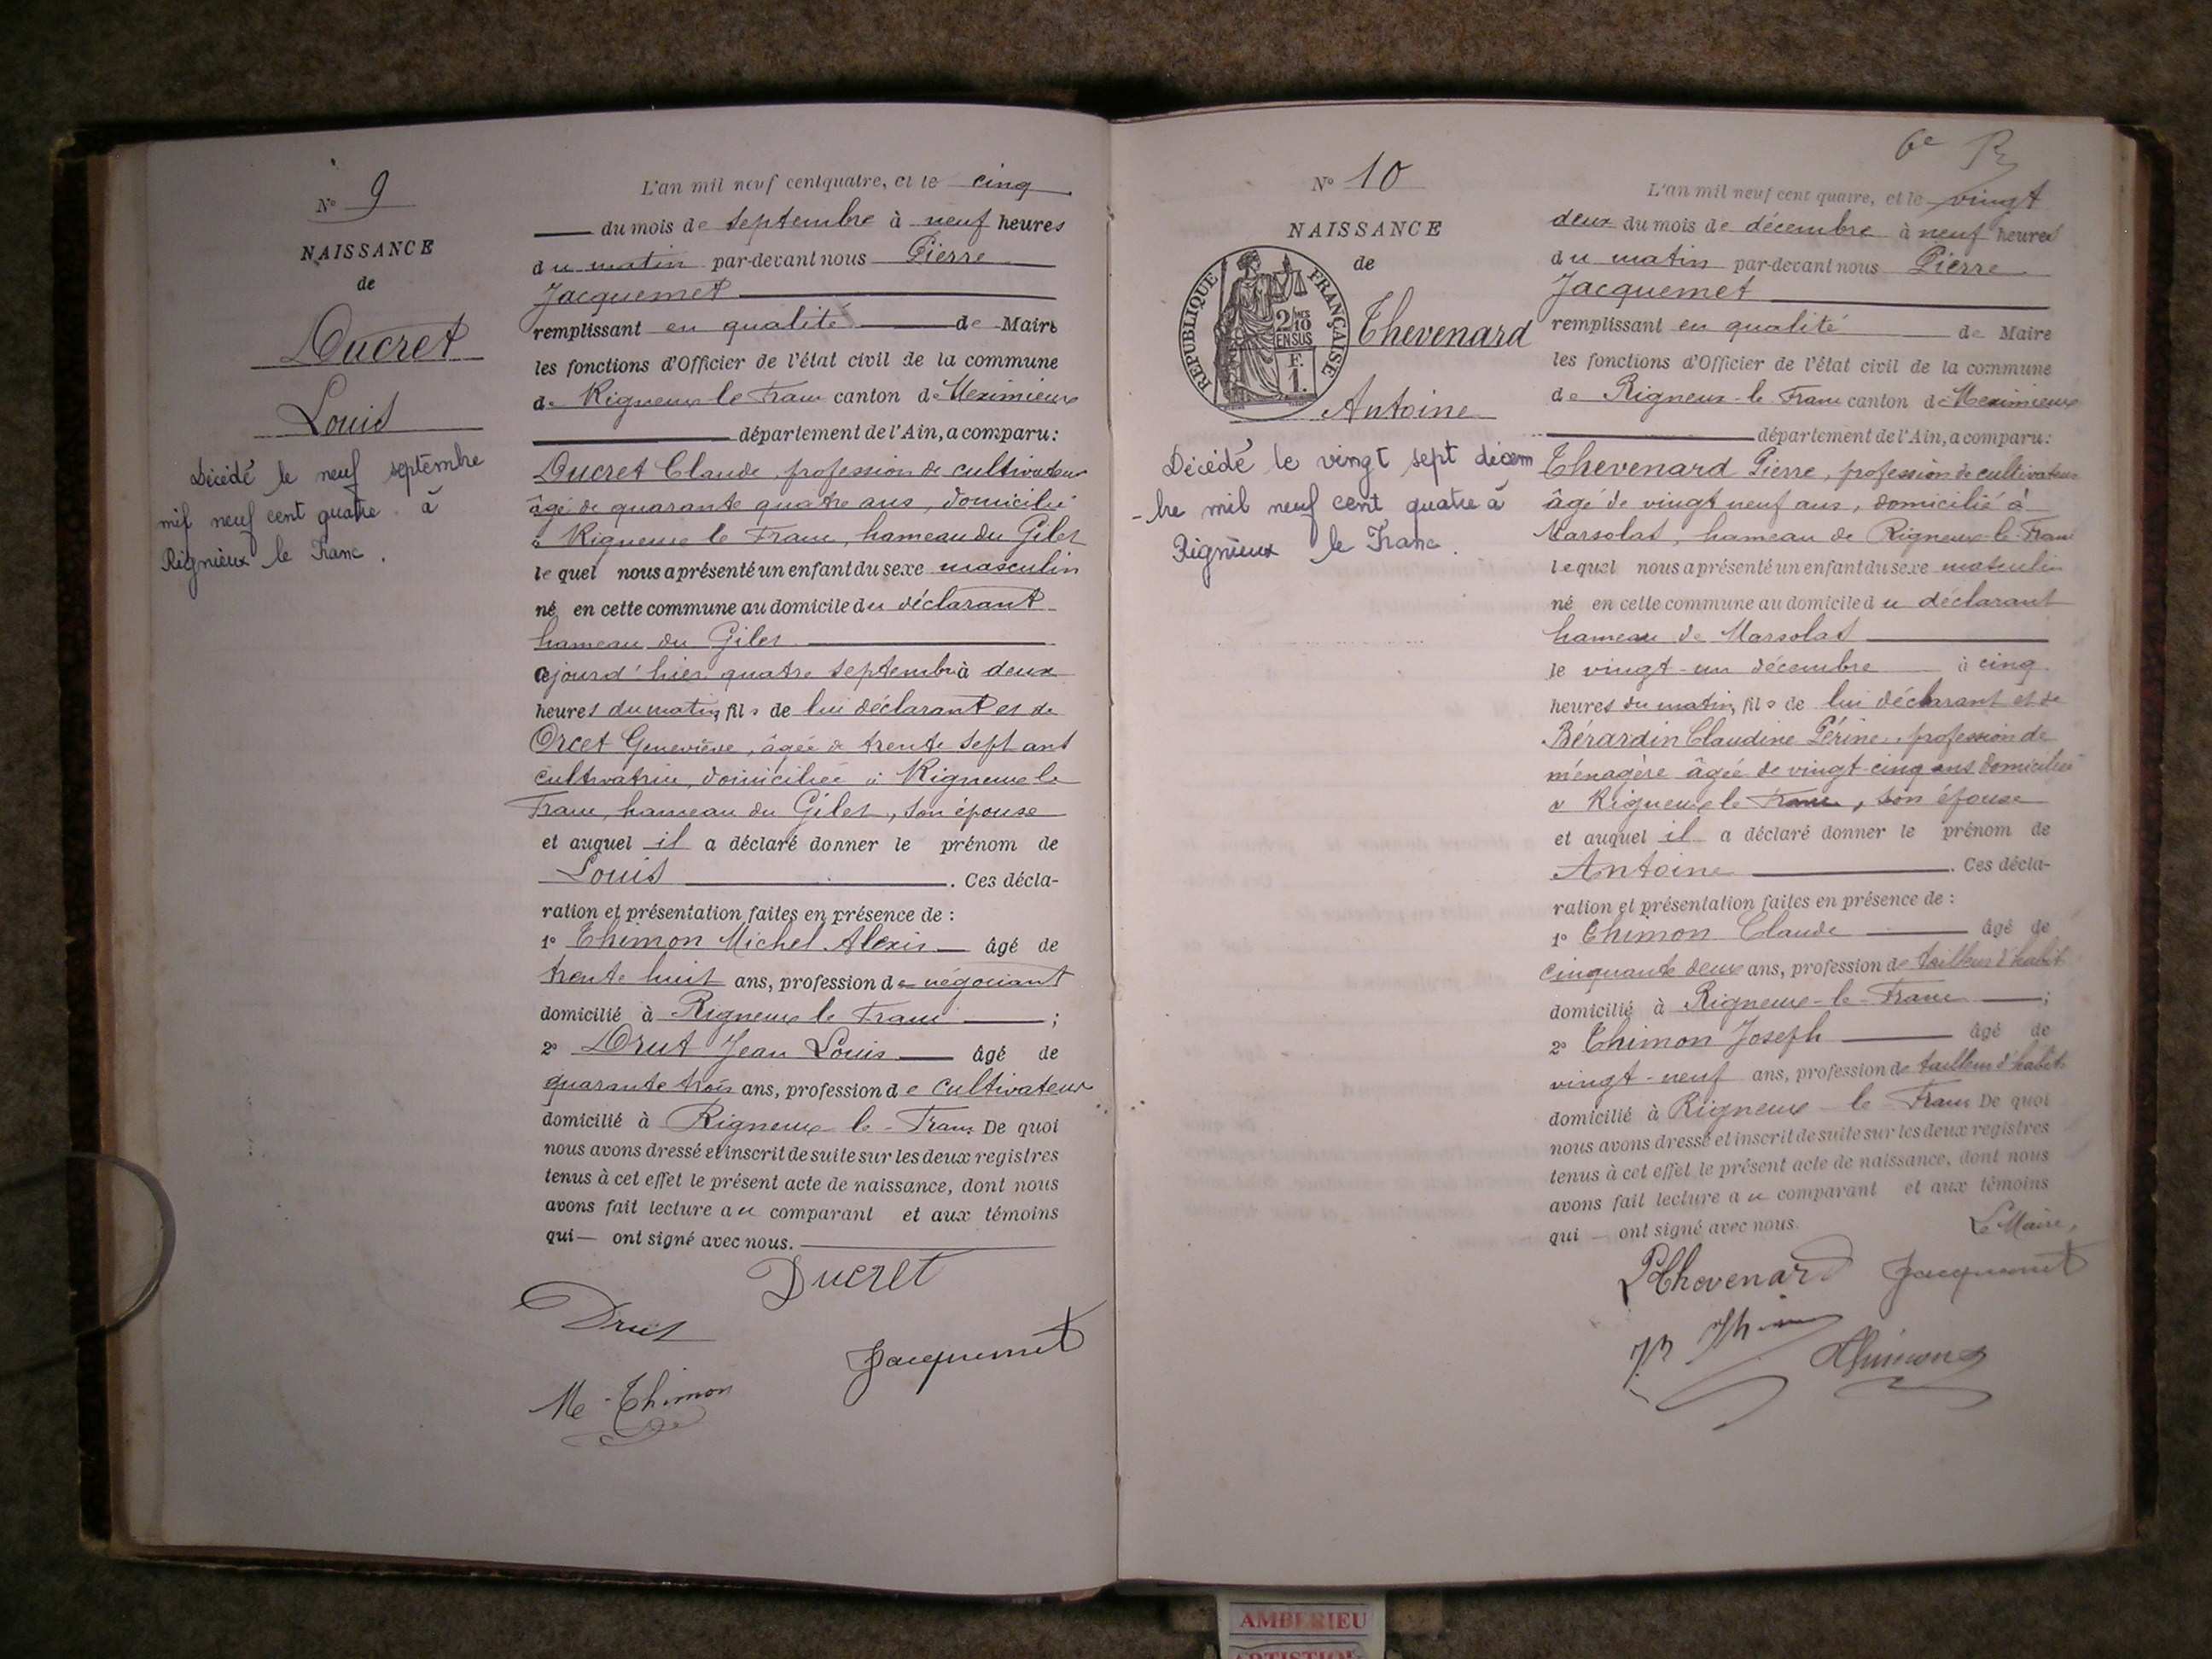 N° 9
NAISSANCE
de
Ducret
Louis
Décédé le neuf septembre
mil neuf cent quatre à
Rignieux le Franc.
L'an mil neuf cent quatre, et le cinq
du mois de septembre à neuf heures
du matin par-devant nous Pierre
Jacquemet
remplissant en qualité de Maire
les fonctions d'Officier de l'état civil de la commune
de Rigneux le Franc canton de Meximieux
département de l'Ain, a comparu:
Ducret Claude, profession de cultivateur
âgé de quarante quatre ans, domicilié
à Rigneux le Franc, hameau du Gilet
lequel nous a présenté un enfant du sexe masculin
né en cette commune au domicile du déclarant
hameau du Gilet
ajourd'hier quatre septembre à deux
heures du matin, fils de lui déclarant et de
Orcet Geneviève, âgée de trente sept ans
cultivatrice, domiciliée à Rigneux le
Franc, hameau du Gilet, son épouse
et auquel il a déclaré donner le prénom de
Louis. Ces décla-
ration et présentation faites en présence de :
1° Thimon Michel Alexis âgé de
trente huit ans, profession de négociant
domicilié à Rigneux le Franc ;
2° Drut Jean Louis âgé de
quarante trois ans, profession de cultivateur
domicilié à Rigneux le-Franc De quoi
nous avons dressé et inscrit de suite sur les deux registres
tenus à cet effet le présent acte de naissance, dont nous
avons fait lecture au comparant et aux témoins
qui — ont signé avec nous.
Ducret
Drut
Jacquemet
M. Thimon
6e
N° 10
NAISSANCE
de
RÉPUBLIQUE FRANÇAISE
2/10 EN SUS
F. 1.
Thevenard
Antoine
Décédé le vingt sept décem
-bre mil neuf cent quatre à
Rignieux le Franc.
L'an mil neuf cent quatre, et le vingt
deux du mois de décembre à neuf heures
du matin par-devant nous Pierre
Jacquemet
remplissant en qualité de Maire
les fonctions d'Officier de l'état civil de la commune
de Rigneux-le Franc canton de Meximieux
département de l'Ain, a comparu:
Thevenard Pierre, profession de cultivateur
âgé de vingt neuf ans, domicilié à
Marsolat, hameau de Rigneux-le-Franc
lequel nous a présenté un enfant du sexe masculin
né en cette commune au domicile du déclarant
hameau de Marsolat
le vingt-un décembre à cinq
heures du matin, fils de lui déclarant et de
Bérardin Claudine Périne, profession de
ménagère âgée de vingt-cinq ans domiciliée
à Rigneux le Franc, son épouse
et auquel il a déclaré donner le prénom de
Antoine. Ces décla-
ration et présentation faites en présence de :
1° Thimon Claude âgé de
cinquante deux ans, profession de tailleur d'habit
domicilié à Rigneux-le-Franc ;
2° Thimon Joseph âgé de
vingt-neuf ans, profession de tailleur d'habits
domicilié à Rigneux-le-Franc De quoi
nous avons dressé et inscrit de suite sur les deux registres
tenus à cet effet le présent acte de naissance, dont nous
avons fait lecture au comparant et aux témoins
qui — ont signé avec nous.
Le Maire,
P Thevenard
Jacquemet
Thimon
AMBERIEU
ARTISTIQUE